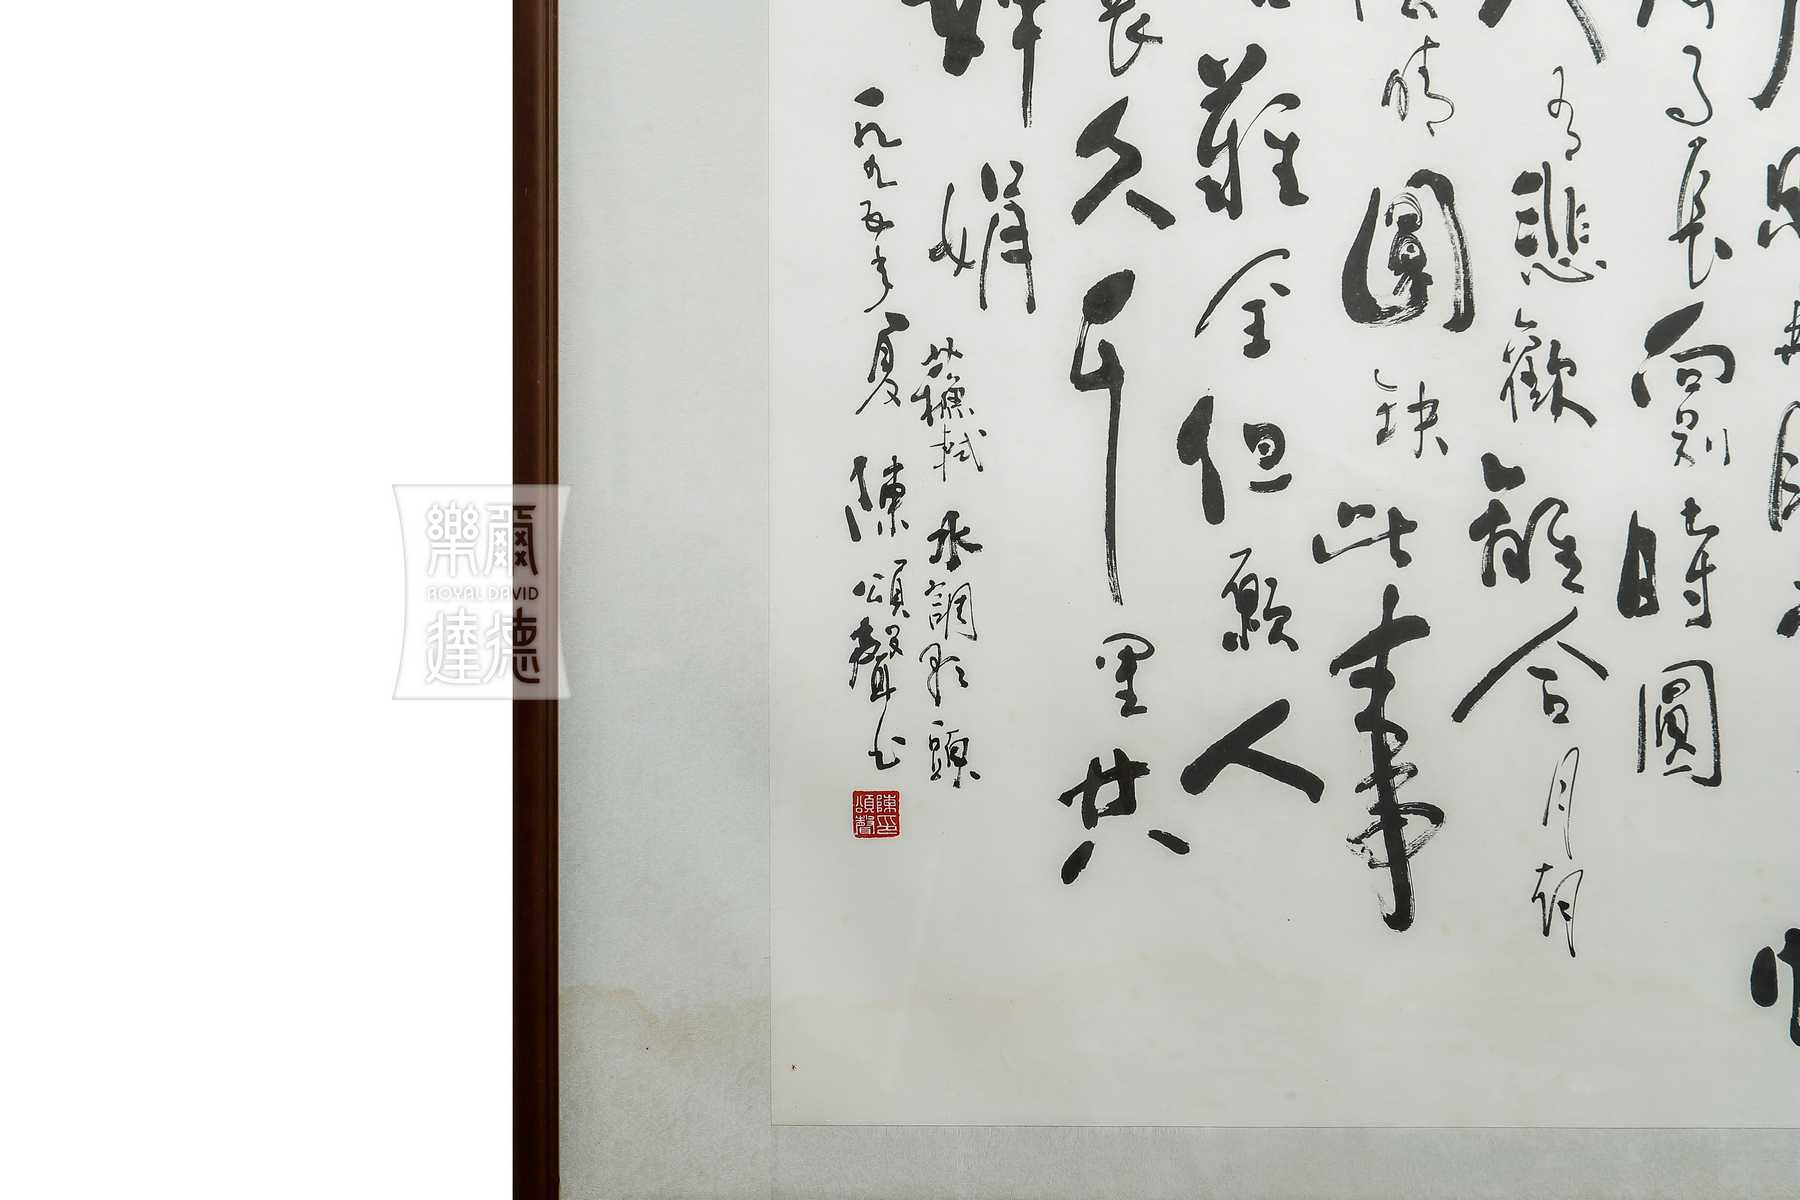 恩無
長向別時圓
有悲歡離合月朝
晴圓缺此事
難全但願人
長久千里共
嬋娟
蘇軾 水調歌頭
一九九五年夏 陳頌聲書
陳印頌聲
樂爾
ROYAL DAVID
達德